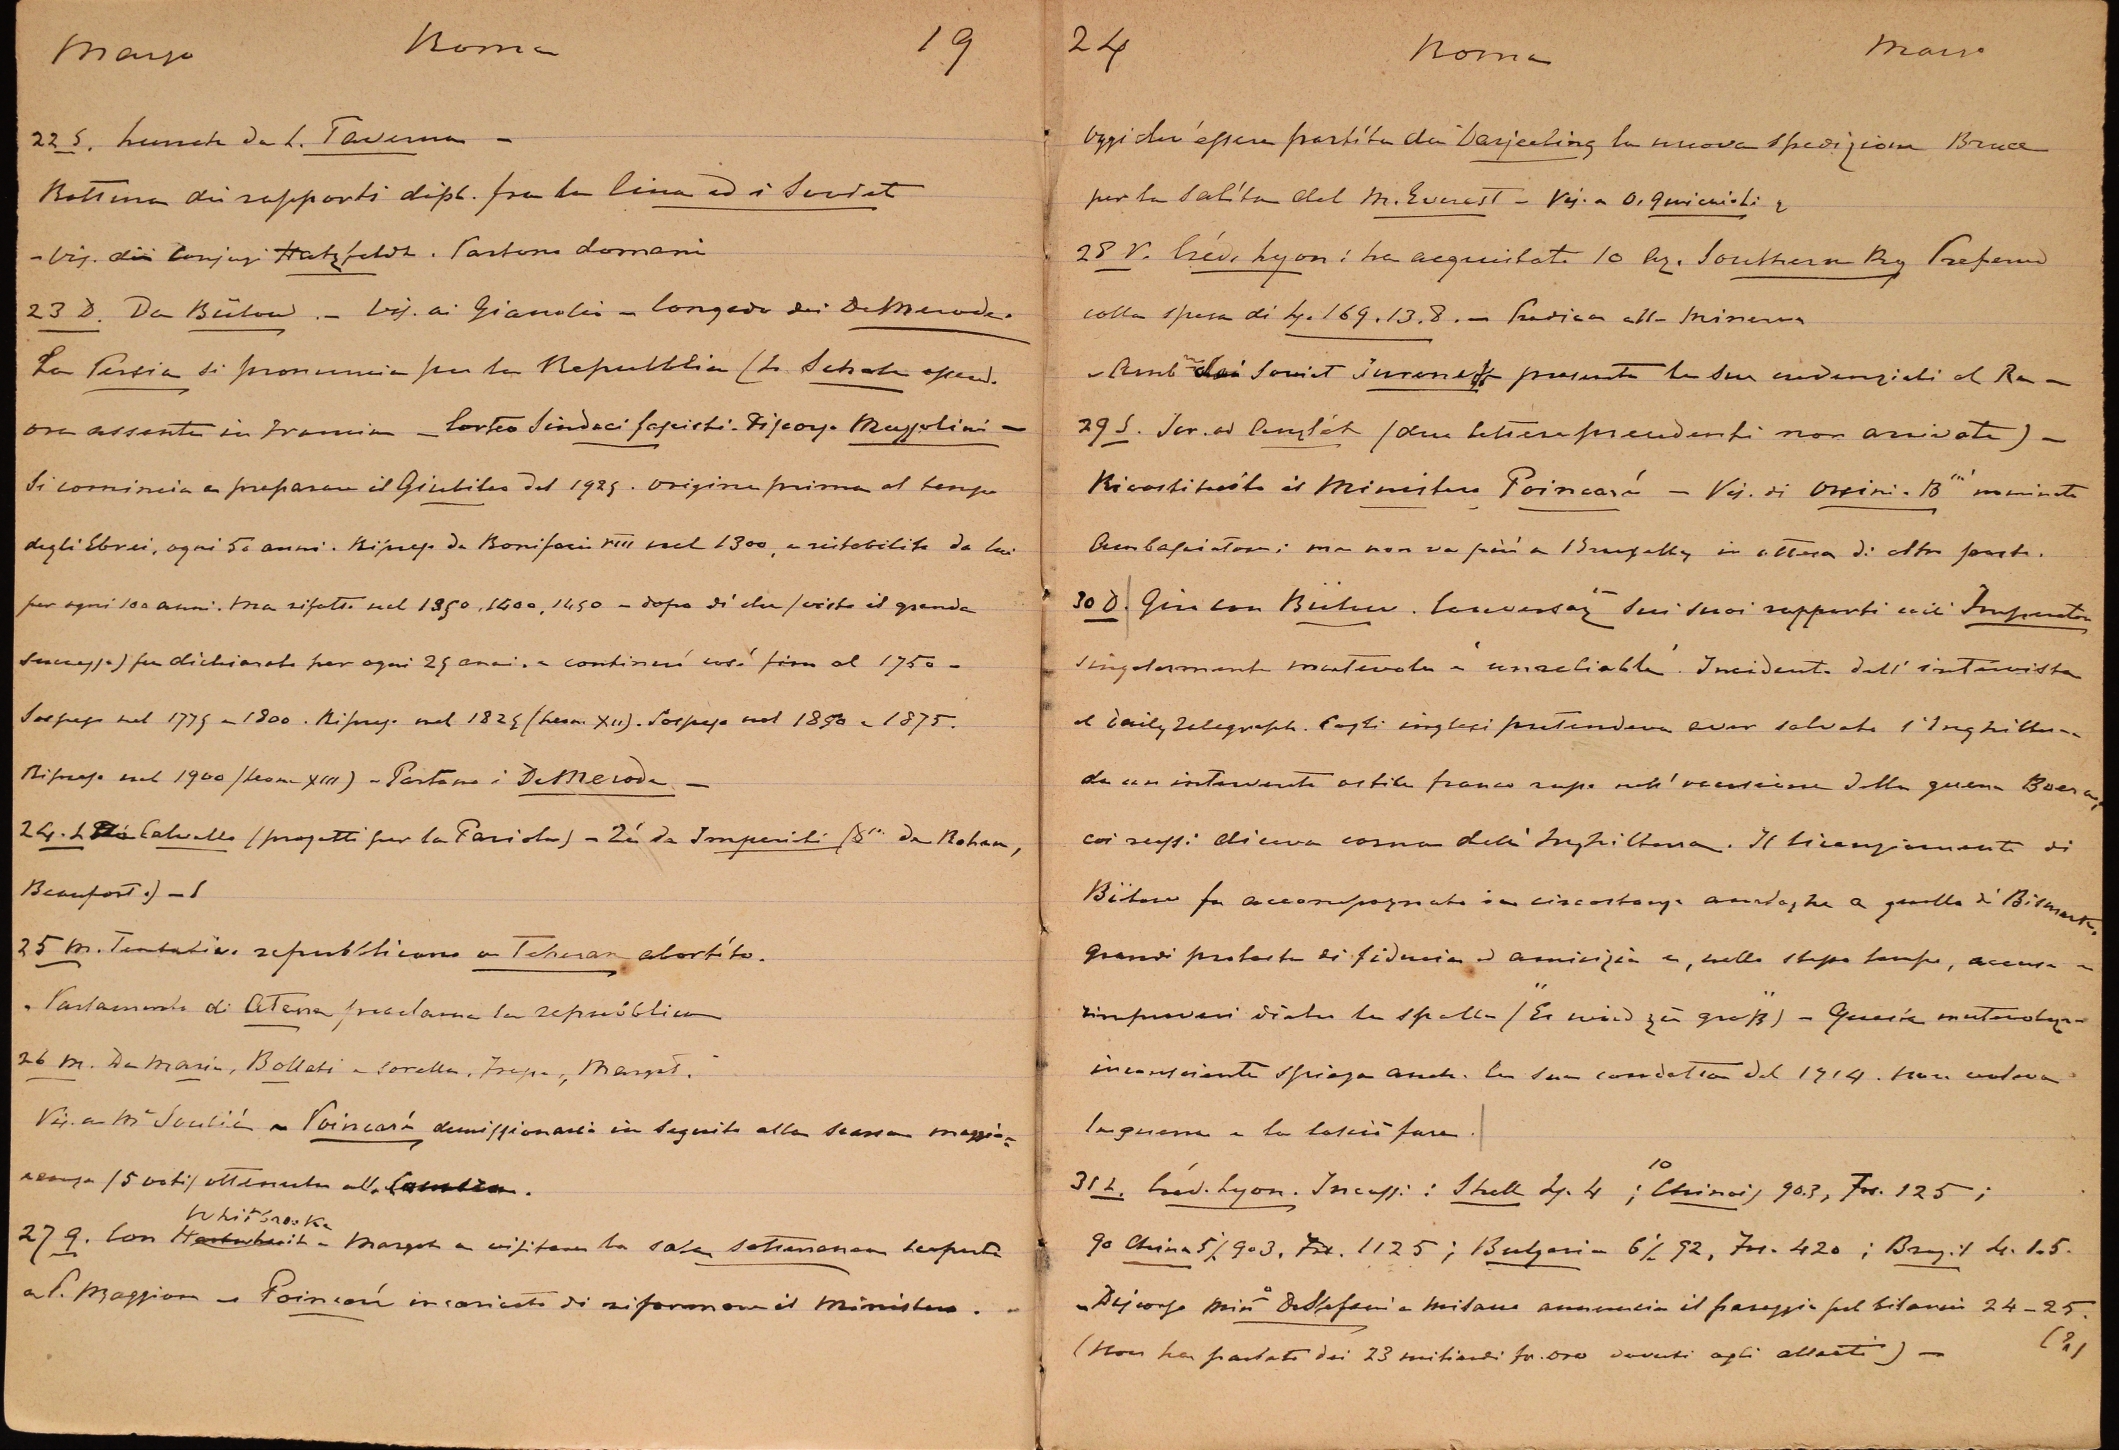 Marzo Roma 19
22 S. Lunch da L. Taverna –
Rottura dei rapporti dipl. fra la Cina ed i Soviet
– Vis. dei Conjugi Hatzfeldt. Partono domani
23 D. Da Bülow. – Vis. ai Gianolio – Congedo dei De Merode.
La Persia si pronuncia per la Repubblica (lo Schah essend.
ora assente in Francia – Corteo Sindaci fascisti. Discorso Mussolini –
Si comincia a preparare il Giubileo del 1925. Origine prima al tempo
degli Ebrei, ogni 50 anni. Ripreso da Bonifacio VIII nel 1300, e ristabilito da lui
per ogni 100 anni. Ma rifatto nel 1350, 1400, 1450 – dopo di che (visto il grande
successo) fu dichiarato per ogni 25 anni. e continuò così fino al 1750 –
Sospeso nel 1775 e 1800. Ripreso nel 1825 (Leone XII). Sospeso nel 1850 e 1875.
Ripreso nel 1900 (Leone XIII) – Partono i De Merode –
24. L Calvello (progetti per la Fariola) – Thé da Imperiali (Dsse de Rohan,
Beaufort.) –
25 M. Tentativo repubblicano a Teheran abortito.
– Parlamento di Atene proclama la repubblica
26 M. Da Maria, Bollati e sorella, Margot.
Vis. a Mr Soulié – Poincaré dimissionario in seguito alla scarsa maggio=
ranza (5 voti) ottenuta alla Camera.
Whitbreaks
27 G. Con e Margot a visitare la sala sotterranea scoperta
a P. Maggiore – Poincaré incaricato di riformare il Ministero. –
24 Roma Marzo
Oggi dev'essere partita da Darjeeling la nuova spedizione Bruce
per la salita del M. Everest – Vis. a O. Guiccioli
28 V. Créd. Lyon: ha acquistato 10 Az. Southern Ry Preferred
colla spesa di Ls. 169.13.8. – Predica alla Minerva
– Amb.re dei Soviet Jureneff presenta le sue credenziali al Re –
29 S. Scr. ad (due lettere precedenti non arrivate) –
Ricostituito il Ministero Poincaré – Vis. di Orsini. Bni nominato
Ambasciatore; ma non va più a Bruxelles in attesa di altro posto.
30 D. Giro con Bülow. Conversaz.ne sui suoi rapporti coll'Imperatore
singolarmente mutevole e "unreliable". Incidente dell'intervista
al Daily Telegraph. Cogli inglesi pretendeva aver salvato l'Inghilterra
da un intervento ostile franco russo nell'occasione della guerra Boera,
coi russi diceva corna dell'Inghilterra. Il licenziamento di
Bülow fu accompagnato da circostanze analoghe a quello di Bismark.
Grandi proteste di fiducia ed amicizia e, nello stesso tempo, accuse e
rimproveri dietro le spalle ("Er wird zu groß") – Questa mutevolezza
incosciente spiega anche la sua condotta del 1914. Non voleva
la guerra e la lasciò fare.
31 L. Créd. Lyon. Incassi: Shell Ls. 4; 10 Chinois 903, Frs. 125;
90 China 5% 903, Frs. 1125; Bulgaria 6% 92, Frs. 420; Brasil Ls. 1.5.
– Discorso Mino De Stefani a Milano annuncia il pareggio pel bilancio 24–25.
(Non ha parlato dei 23 miliardi fr. oro dovuti agli alleati) – (?)